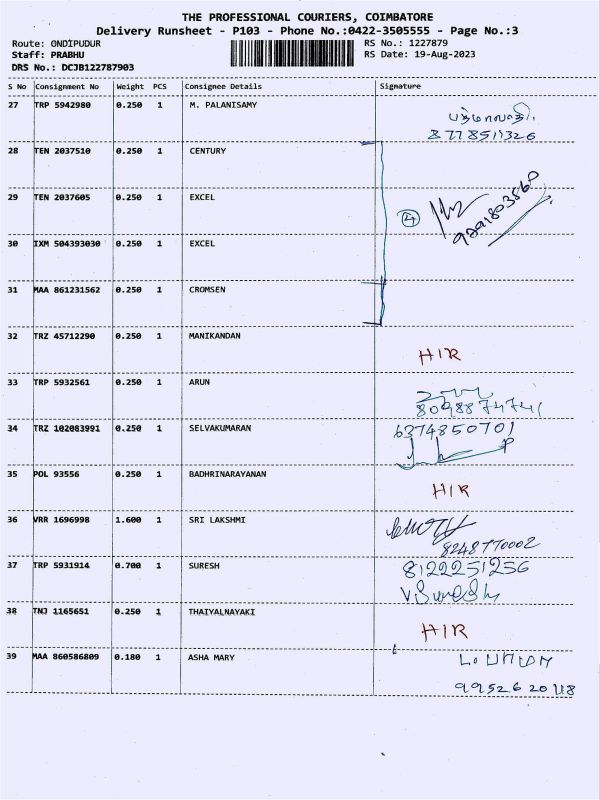 THE PROFESSIONAL COURIERS, COIMBATORE
Delivery Runsheet - P103 - Phone No.:0422-3505555 - Page No.:3
Route: ONDIPUDUR RS No.: 1227879
Staff: PRABHU RS Date: 19-Aug-2023
DRS No.: DCJB122787903
S No Consignment No Weight PCS Consignee Details Signature
27 TRP 5942980 0.250 1 M. PALANISAMY
8778511326
28 TEN 2037510 0.250 1 CENTURY
29 TEN 2037605 0.250 1 EXCEL
4
30 IXM 504393030 0.250 1 EXCEL
31 MAA 861231562 0.250 1 CROMSEN
32 TRZ 45712290 0.250 1 MANIKANDAN
HIR
33 TRP 5932561 0.250 1 ARUN
34 TRZ 102083991 0.250 1 SELVAKUMARAN 6374850701
35 POL 93556 0.250 1 BADHRINARAYANAN
HIR
36 VRR 1696998 1.600 1 SRI LAKSHMI
8248770002
37 TRP 5931914 0.700 1 SURESH 8122251256
38 TNJ 1165651 0.250 1 THAIYALNAYAKI
HIR
39 MAA 860586809 0.180 1 ASHA MARY
9952620118